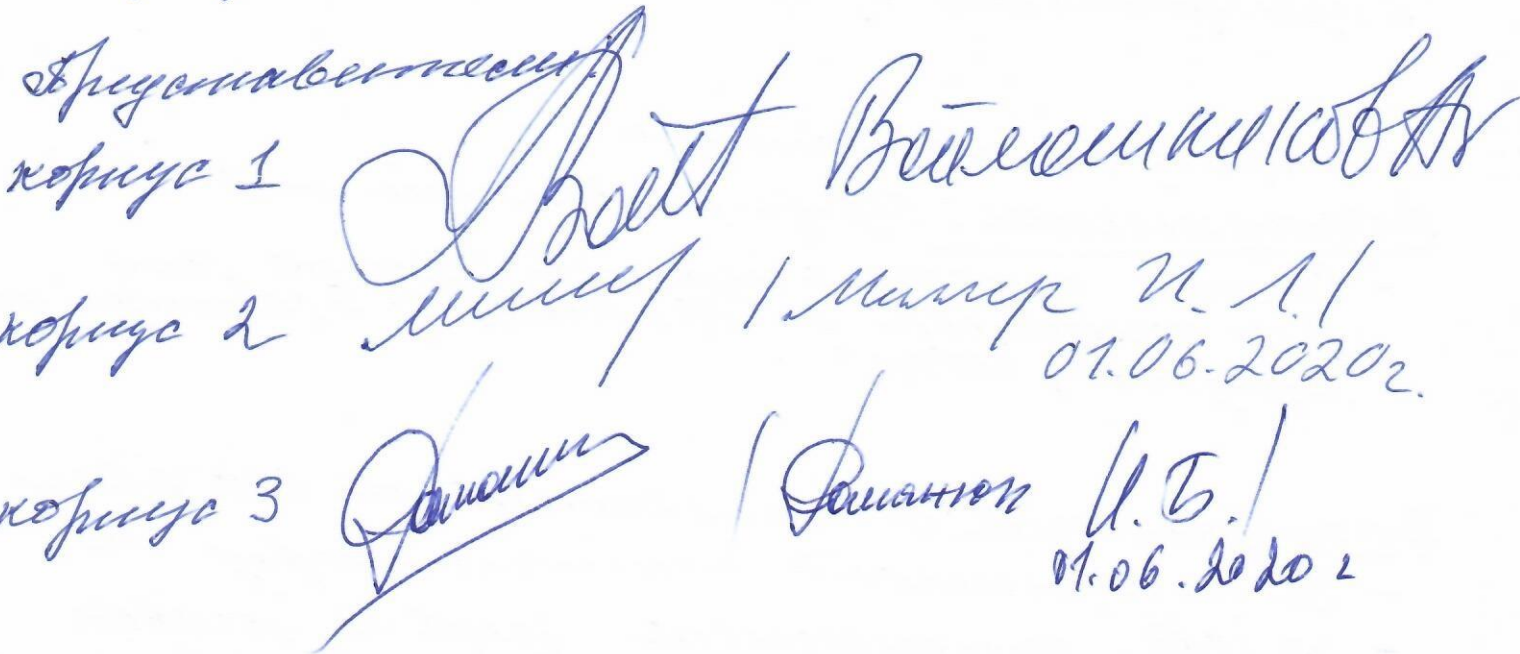 Представители
корпус 1 Войлошников АВ
корпус 2 / Миллер И. Л. /
01.06.2020г.
корпус 3 / Романюк И. Б. /
01.06.2020 г